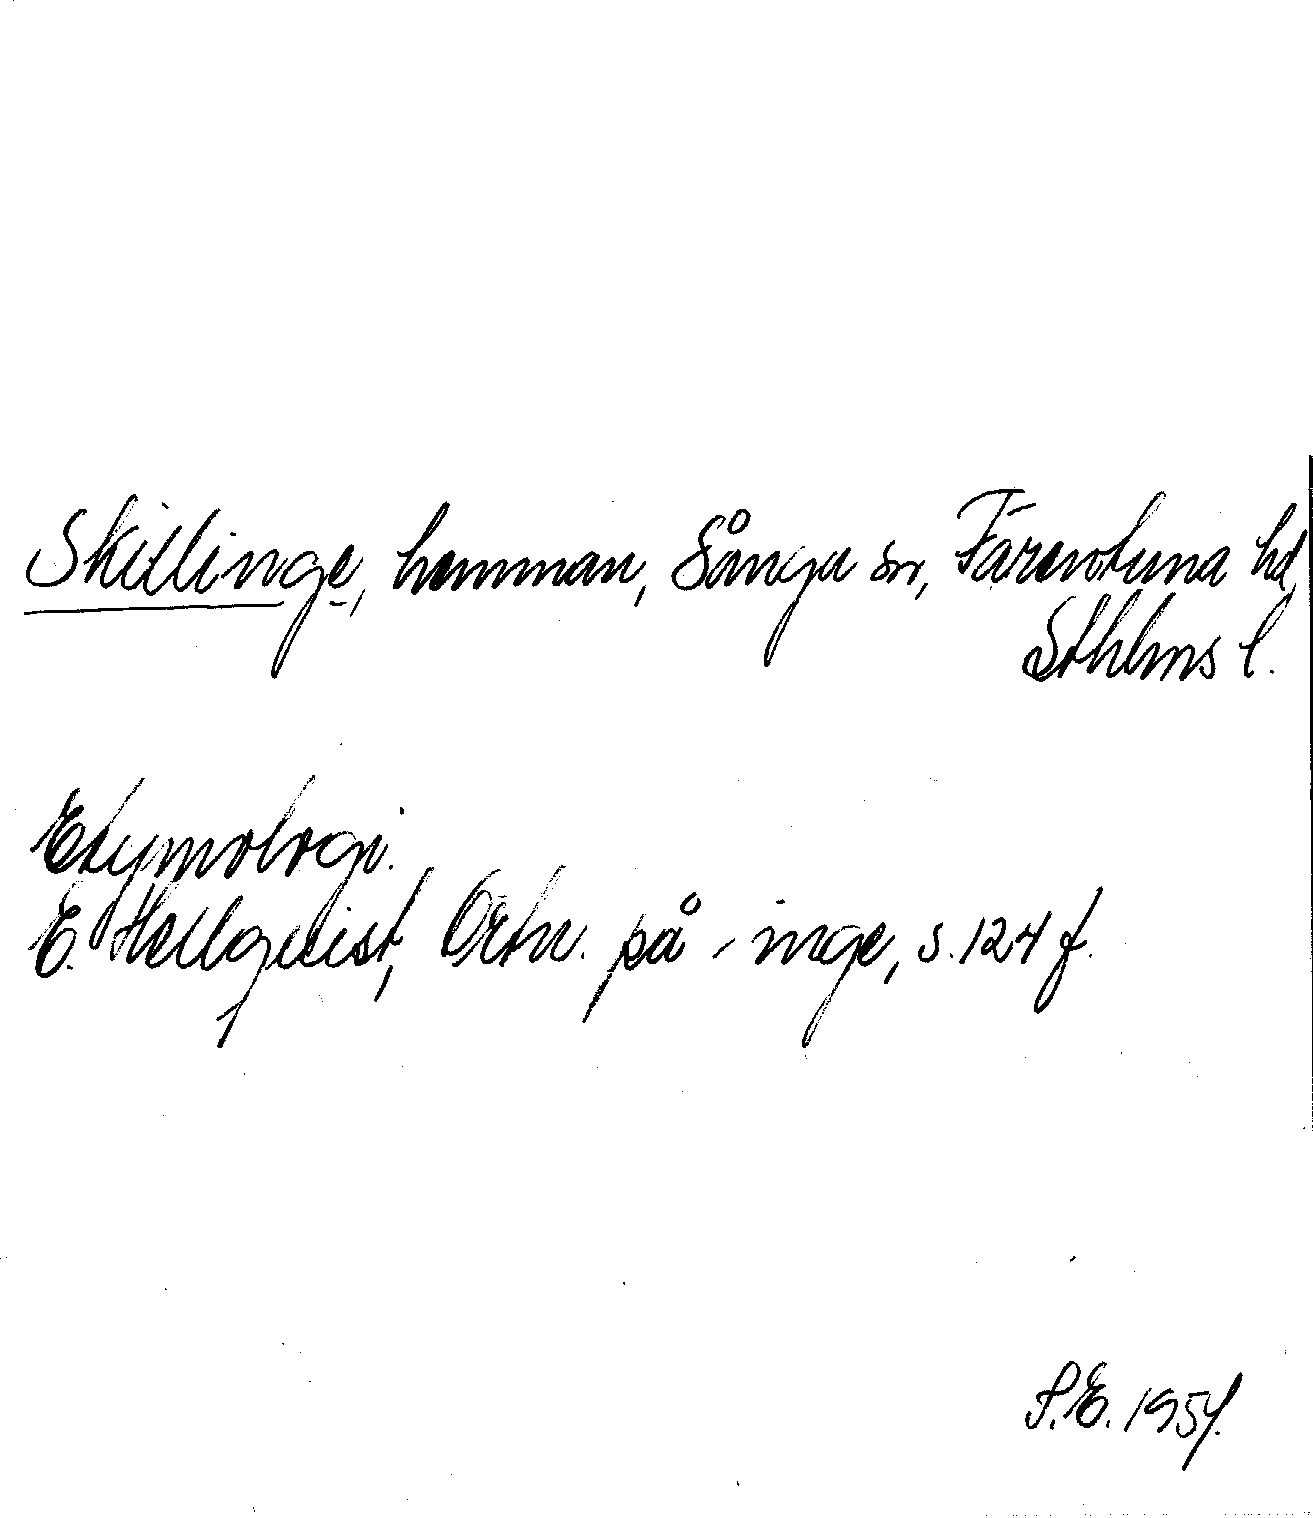 Skillinge, hemman, Sånga sn, Färentuna hd,
Sthlms l.
Etymologi.
E. Hellquist, Ortn. på -inge, s. 124 f.
S.E. 1954.